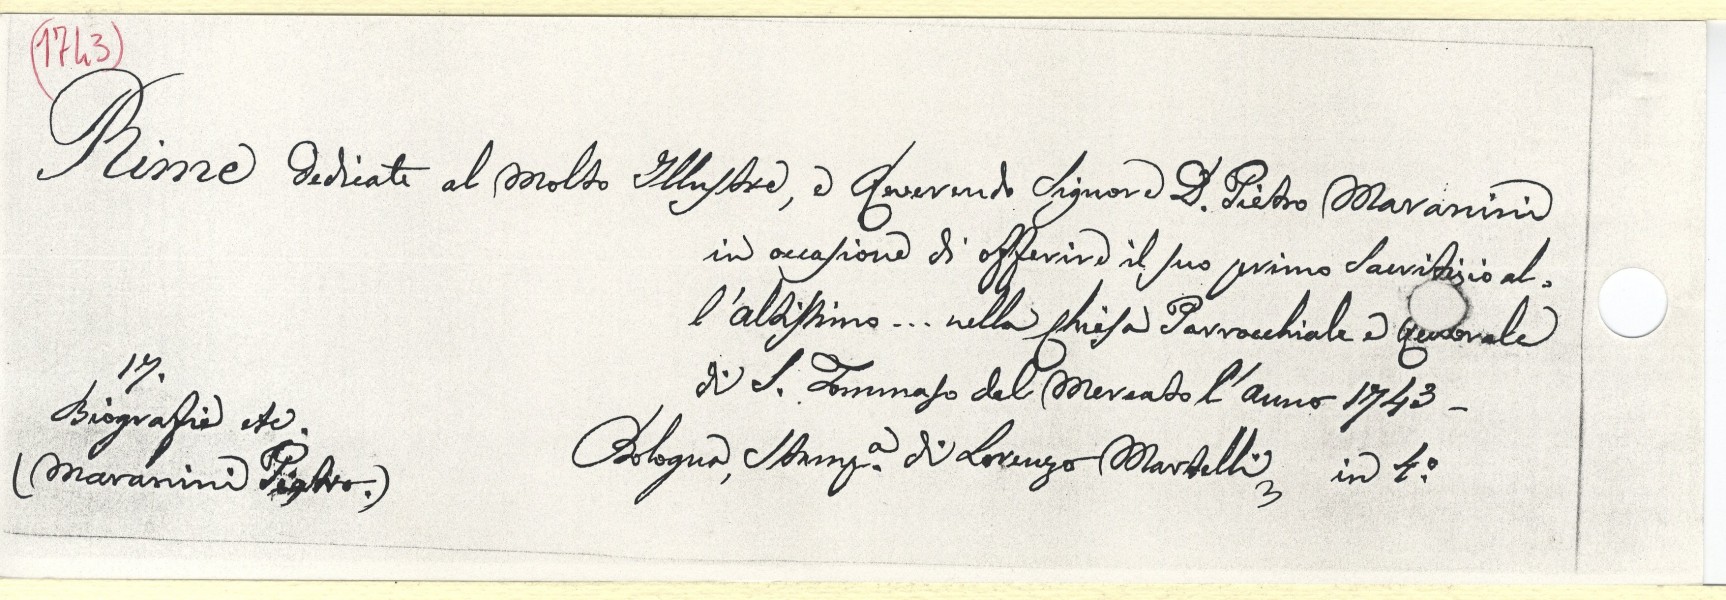 (1743)
Rime dedicate al Molto Illustre, e Reverendo Signore D. Pietro Maranini
in occasione di offerire il suo primo Sacrifizio al-
l'altissimo ... nella Chiesa Parrocchiale e
di S. Tommaso del Mercato l'anno 1743 -
Bologna, Stamp.a di Lorenzo Martelli, in 4.o
17.
Biografie etc.
(Maranini Pietro.)